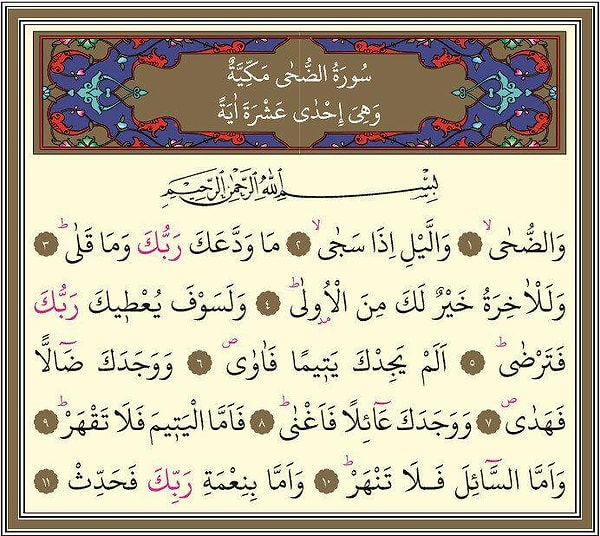 سُورَةُ الضُّحٰى مَكِّيَّةٌ
وَهِىَ اِحْدٰى عَشْرَةَ اٰيَةً
بِسْمِ اللّٰهِ الرَّحْمٰنِ الرَّحِيمِ
وَالضُّحٰىۙ ﴿١﴾ وَالَّيْلِ اِذَا سَجٰىۙ ﴿٢﴾ مَا وَدَّعَكَ رَبُّكَ وَمَا قَلٰىۜ ﴿٣﴾
وَلَلْاٰخِرَةُ خَيْرٌ لَكَ مِنَ الْاُو۫لٰىۜ ﴿٤﴾ وَلَسَوْفَ يُعْطِيكَ رَبُّكَ
فَتَرْضٰىۜ ﴿٥﴾ اَلَمْ يَجِدْكَ يَتِيمًا فَاٰوٰىۖ ﴿٦﴾ وَوَجَدَكَ ضَٓالًّا
فَهَدٰىۖ ﴿٧﴾ وَوَجَدَكَ عَٓائِلًا فَاَغْنٰىۜ ﴿٨﴾ فَاَمَّا الْيَتِيمَ فَلَا تَقْهَرْۜ ﴿٩﴾
وَاَمَّا السَّٓائِلَ فَلَا تَنْهَرْۜ ﴿١٠﴾ وَاَمَّا بِنِعْمَةِ رَبِّكَ فَحَدِّثْ ﴿١١﴾